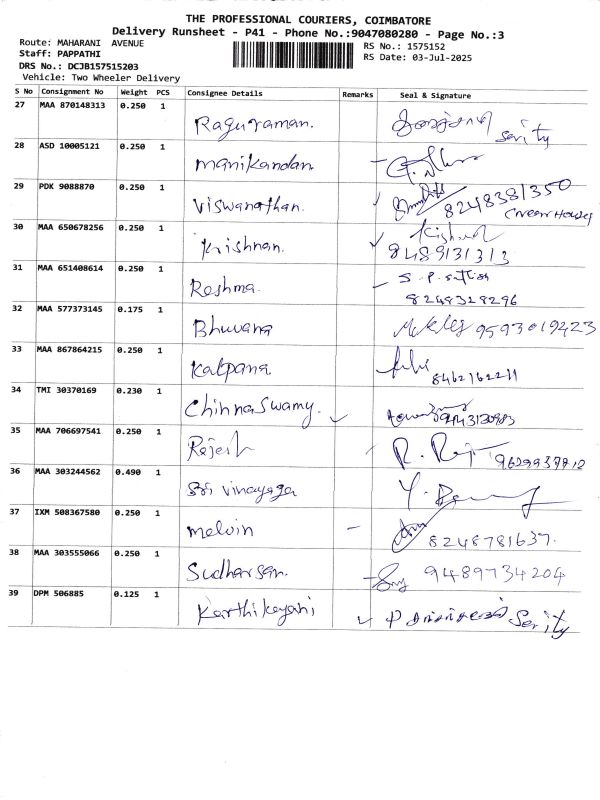 THE PROFESSIONAL COURIERS, COIMBATORE
Delivery Runsheet - P41 - Phone No.:9047080280 - Page No.:3
Route: MAHARANI AVENUE
RS No.: 1575152
Staff: PAPPATHI
RS Date: 03-Jul-2025
DRS No.: DCJB157515203
Vehicle: Two Wheeler Delivery
S No Consignment No Weight PCS Consignee Details Remarks Seal & Signature
27 MAA 870148313 0.250 1 Raguraman.
28 ASD 10005121 0.250 1 Manikandan
29 PDK 9088870 0.250 1 Viswanathan. 8248381350
30 MAA 650678256 0.250 1 Krishnan. 8489131313
31 MAA 651408614 0.250 1 Reshma. 8248328296
32 MAA 577373145 0.175 1 Bhuvana
33 MAA 867864215 0.250 1 Kalpana
34 TMI 30370169 0.230 1 Chinnaswamy.
35 MAA 706697541 0.250 1 Rejesh
36 MAA 303244562 0.490 1 Sri vinayaga
37 IXM 508367580 0.250 1 Melvin 8248781637.
38 MAA 303555066 0.250 1 Sudharsan. 9489734204
39 DPM 506885 0.125 1 Karthikeyani